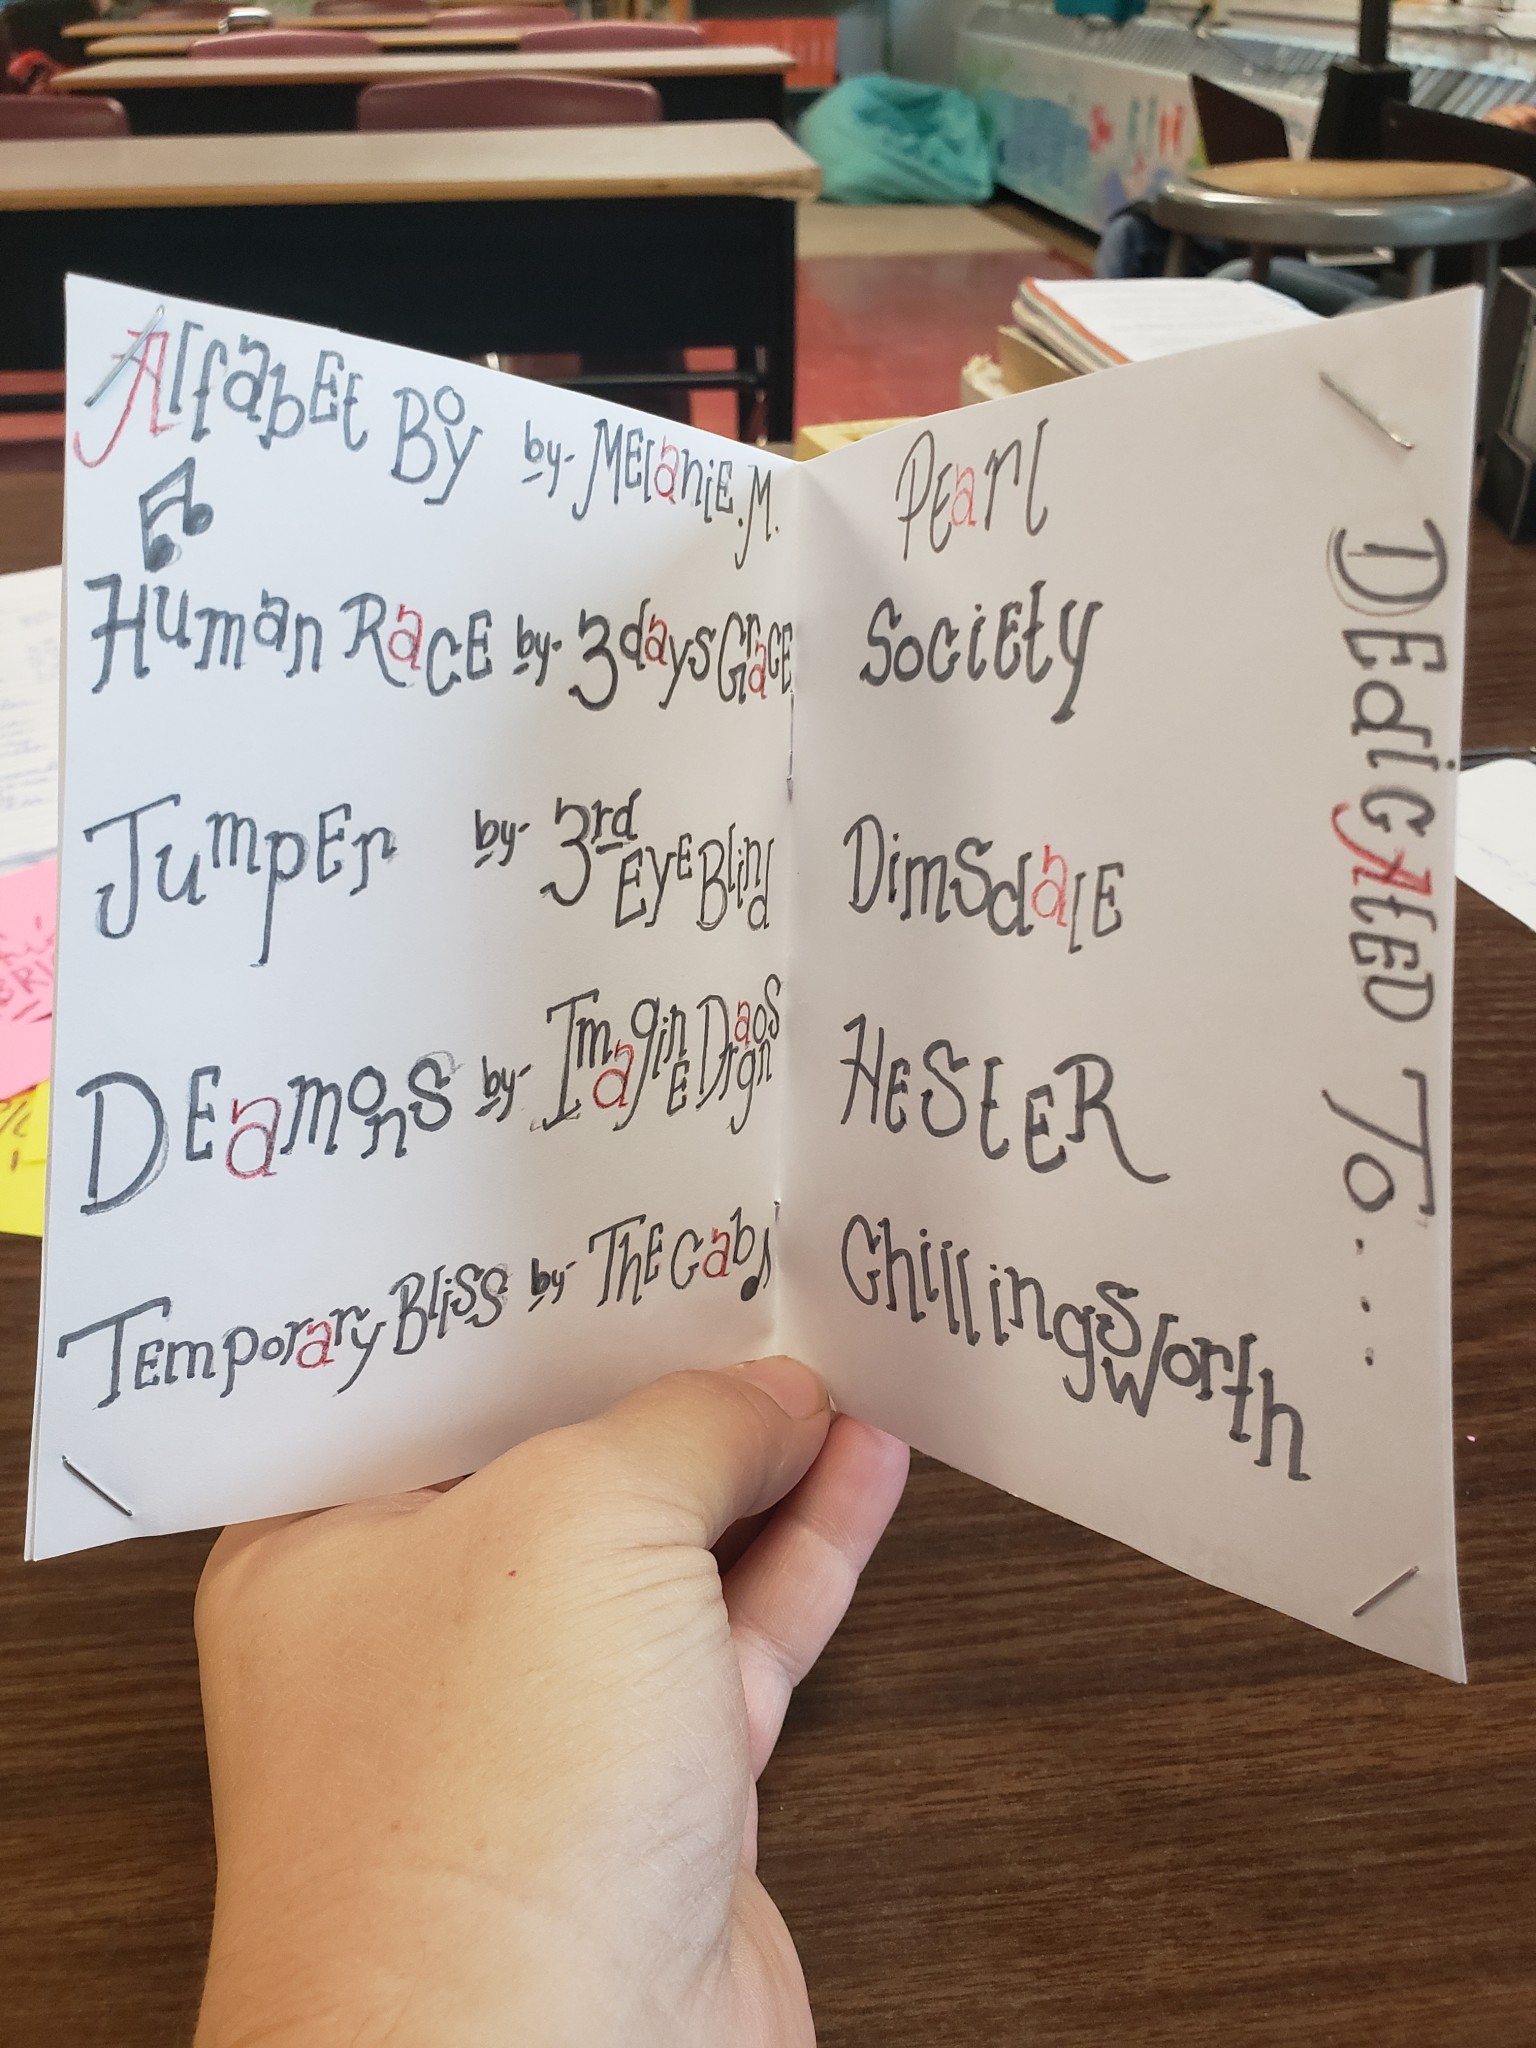 Alfabet Boy by- Melanie.M.
Human Race by- 3daysGrace
Jumper by- 3rd EyeBlind
Deamons by- Imagine Dragons
Temporary Bliss by- The Cab
Pearl
Society
Dimsdale
Hester
Chillingsworth
Dedicated To....